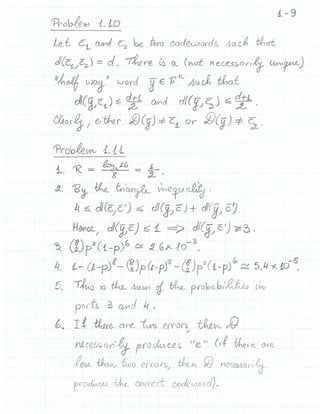 1-9
Problem 1.10
Let c̄₁ and c̄₂ be two codewords such that
d(c̄₁,c̄₂) = d. There is a (not necessarily unique)
"half way" word ȳ ∈ Fⁿ such that
d(ȳ,c̄₁) ≤ (d+1)/2 and d(ȳ,c̄₂) ≤ (d+1)/2.
Clearly, either 𝒟(ȳ) ≠ c̄₁ or 𝒟(ȳ) ≠ c̄₂.
Problem 1.11
1. R = log₂16/8 = 1/2.
2. By the triangle inequality:
4 ≤ d(c̄,c̄') ≤ d(ȳ,c̄) + d(ȳ,c̄').
Hence, d(ȳ,c̄) ≤ 1 ⟹ d(ȳ,c̄') ≥ 3.
3. (8 2)p²(1-p)⁶ ≃ 2.6×10⁻³.
4. 1-(1-p)⁸-(8 1)p(1-p)⁷-(8 2)p²(1-p)⁶ ≃ 5.4×10⁻⁵.
5. This is the sum of the probabilities in
parts 3 and 4.
6. If there are two errors, then 𝒟
necessarily produces "e" (if there are
less than two errors, then 𝒟 necessarily
produces the correct codeword).